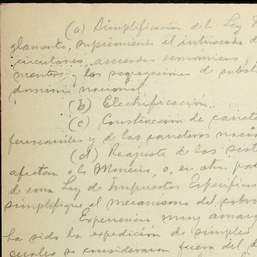 (a) Simplificación de la Ley
glamento, suprimiendo el intrincado d
circulares, acuerdos económicos
mentos y las segregaciones de
dominio nacional.
(b) Electrificación.
(c) Construcción de carrete
ferrocarriles y de las carreteras nacio
(d) Reajuste de las
afectan a la Minería, o, en otra
de una Ley de Impuestos Específica
simplifique el mecanismo del cobro
Experiencia muy amarga
ha sido la expedición de simples
cuales se consideraron fuera del d